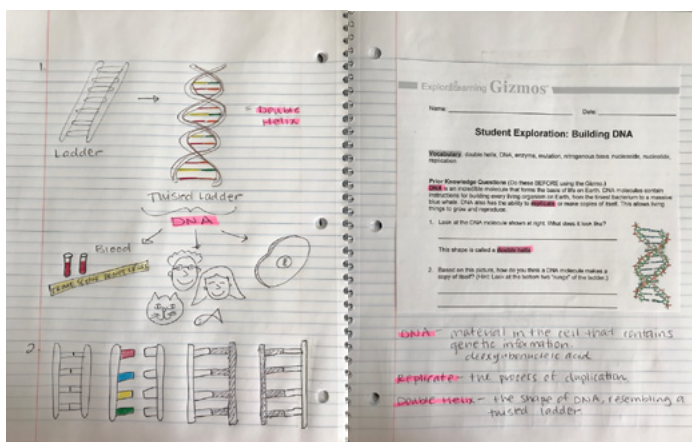 1.
Ladder
= Double
Helix
Twisted Ladder
DNA
Blood
CRIME SCENE DO NOT CROSS
2.
ExploreLearning Gizmos
Name:
Date:
Student Exploration: Building DNA
Vocabulary: double helix, DNA, enzyme, mutation, nitrogenous base, nucleoside, nucleotide,
replication
Prior Knowledge Questions (Do these BEFORE using the Gizmo.)
DNA is an incredible molecule that forms the basis of life on Earth. DNA molecules contain
instructions for building every living organism on Earth, from the tiniest bacterium to a massive
blue whale. DNA also has the ability to replicate, or make copies of itself. This allows living
things to grow and reproduce.
1. Look at the DNA molecule shown at right. What does it look like?
This shape is called a double helix.
2. Based on this picture, how do you think a DNA molecule makes a
copy of itself? (Hint: Look at the bottom two "rungs" of the ladder.)
DNA - material in the cell that contains
genetic information.
deoxyribonucleic acid
Replicate - the process of duplication
Double Helix - the shape of DNA, resembling a
twisted ladder